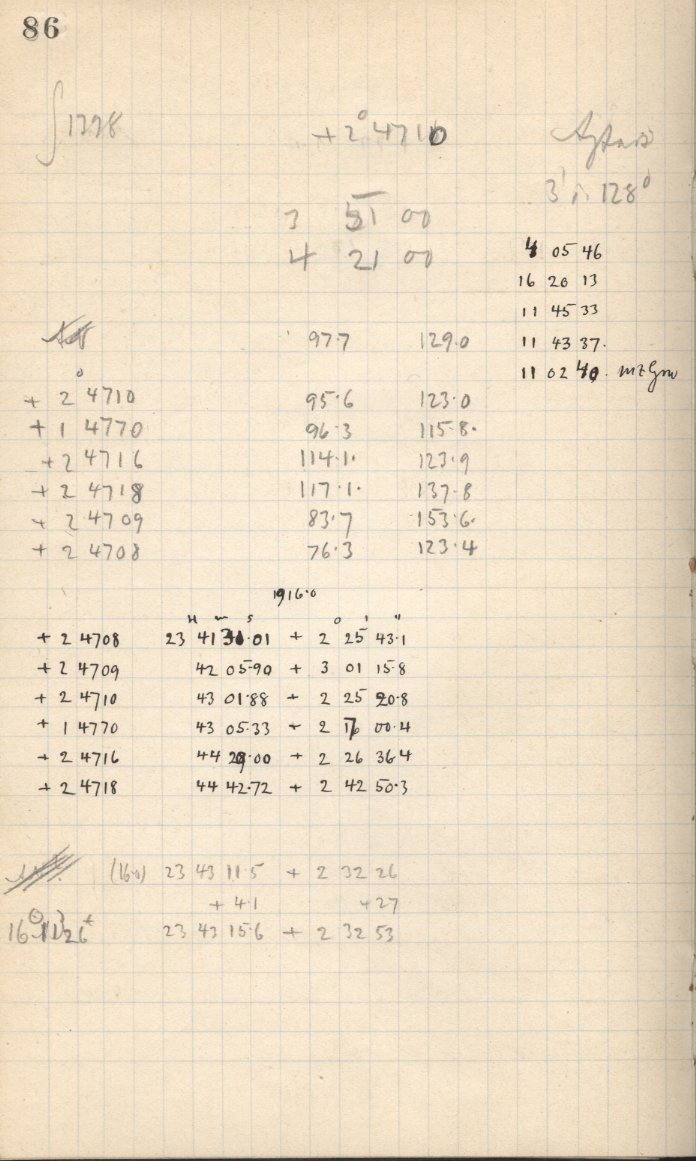 86
∫1228 +2° 4710
3' n 128°
3 51 00
4 21 00
4 05 46
16 20 13
11 45 33
11 43 37.
11 02 40.
97.7 129.0
+ 2° 4710 95.6 123.0
+ 1 4770 96.3 115.8.
+ 2 4716 114.1. 123.9
+ 2 4718 117.1. 137.8
+ 2 4709 83.7 153.6.
+ 2 4708 76.3 123.4
1916.0
H m s ° ' "
+ 2 4708 23 41 .01 + 2 25 43.1
+ 2 4709 42 05.90 + 3 01 15.8
+ 2 4710 43 01.88 + 2 25 20.8
+ 1 4770 43 05.33 + 2 00.4
+ 2 4716 44 29.00 + 2 26 36.4
+ 2 4718 44 42.72 + 2 42 50.3
(16.0) 23 43 11.5 + 2 32 26
+ 4.1 +27
23 43 15.6 + 2 32 53